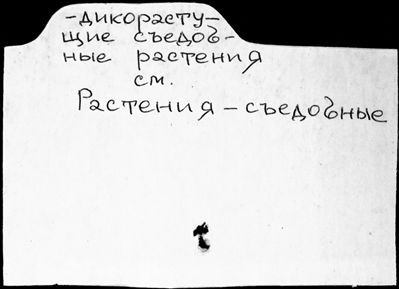 -дикорасту-
щие съедоб-
ные растения
см.
Растения – съедобные